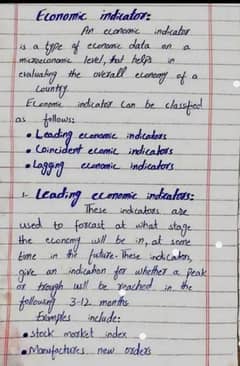 Economic indicator:
An economic indicator
is a type of economic data on a
microeconomic level, that helps in
evaluating the overall economy of a
Country.
Economic indicator can be classified
as follows:
• Leading economic indicators
• Coincident ecomic indicators
• Lagging economic indicators
1- Leading economic indicators:
These indicators are
used to forcast at what stage
the economy will be in, at some
time in the future. These indicators,
give an indication for whether a peak
or trough will be reached in the
following 3-12 months.
Examples include:
• stock market index
• Manufactures new orders